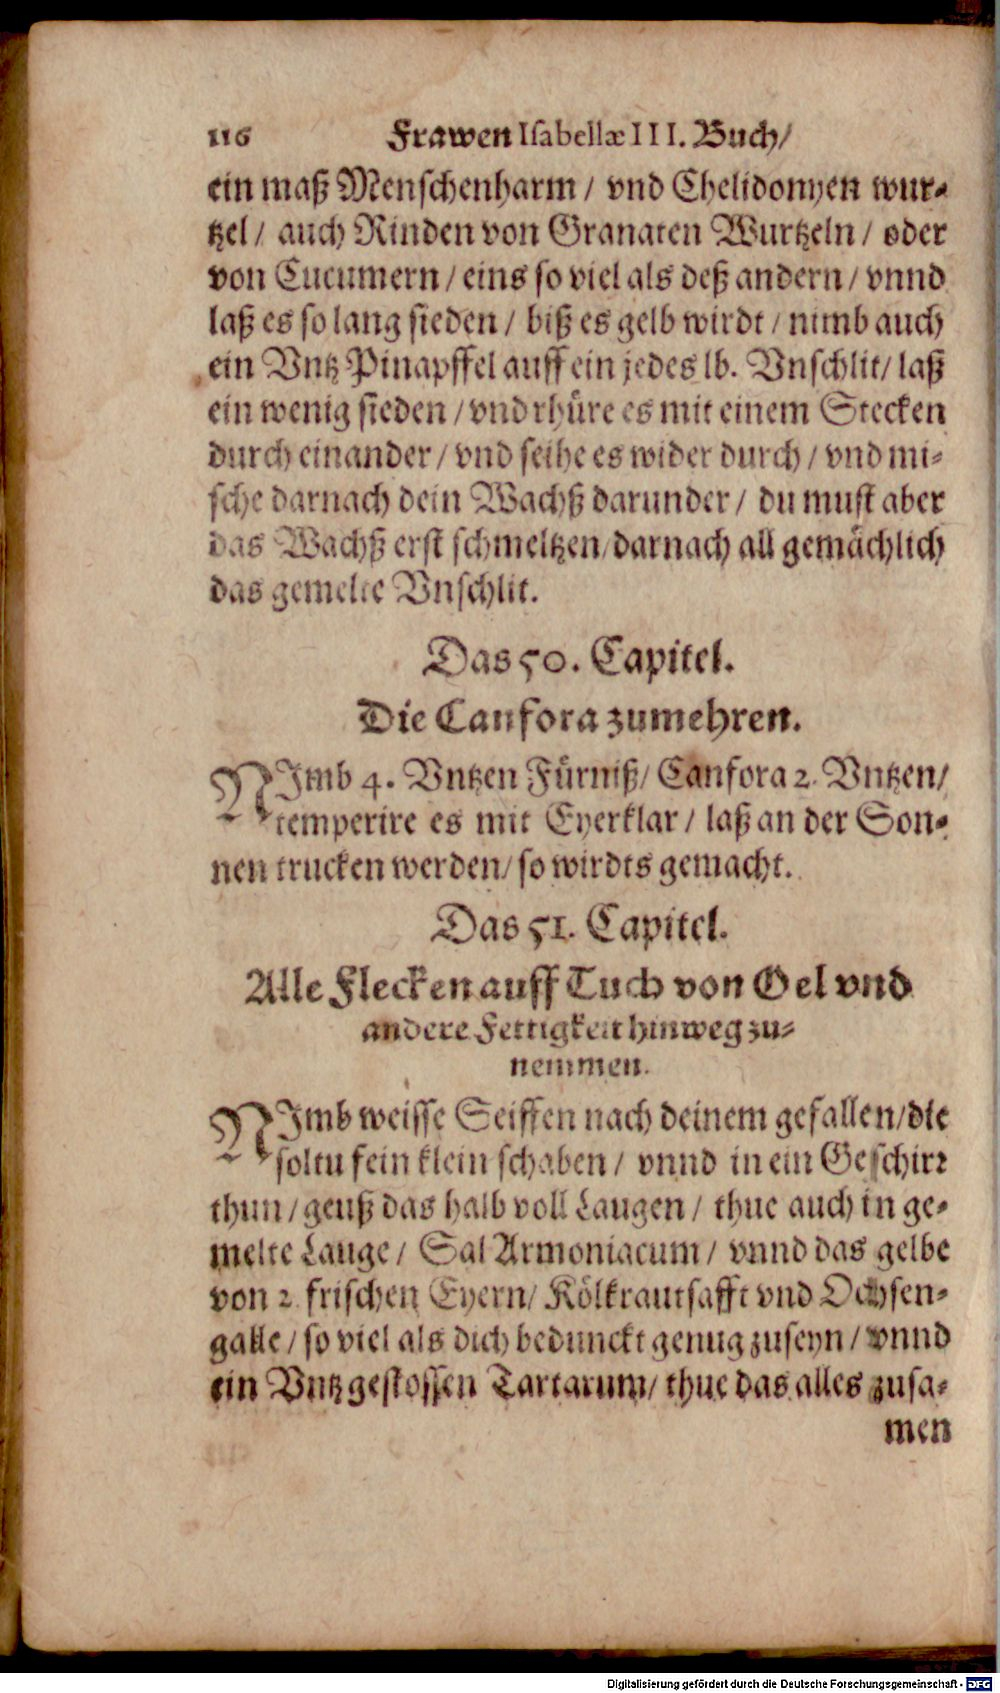 116 Frawen Isabellæ III. Buch/
ein maß Menschenharm / vnd Chelidonyen wur-
tzel / auch Rinden von Granaten Wurtzeln / oder
von Cucumern / eins so viel als deß andern / vnnd
laß es so lang sieden / biß es gelb wirdt / nimb auch
ein Vntz Pinapffel auff ein jedes lb. Vnschlit/ laß
ein wenig sieden / vnd rhüre es mit einem Stecken
durch einander / vnd seihe es wider durch / vnd mi-
sche darnach dein Wachß darunder / du must aber
das Wachß erst schmeltzen/ darnach all gemächlich
das gemelte Vnschlit.
Das 50. Capitel.
Die Canfora zumehren.
NImb 4. Vntzen Fürniß/ Canfora 2. Vntzen/
temperire es mit Eyerklar / laß an der Son-
nen trucken werden/ so wirdts gemacht.
Das 51. Capitel.
Alle Flecken auff Tuch von Oel vnd
andere Fettigkeit hinweg zu-
nemmen.
NImb weisse Seiffen nach deinem gefallen/die
soltu fein klein schaben / vnnd in ein Geschirr
thun / geuß das halb voll Laugen / thue auch in ge-
melte Lauge / Sal Armoniacum / vnnd das gelbe
von 2. frischen Eyern/ Kölkrautsafft vnd Ochsen-
galle / so viel als dich bedunckt genug zuseyn / vnnd
ein Vntz gestossen Tartarum/ thue das alles zusa-
men
Digitalisierung gefördert durch die Deutsche Forschungsgemeinschaft - DFG